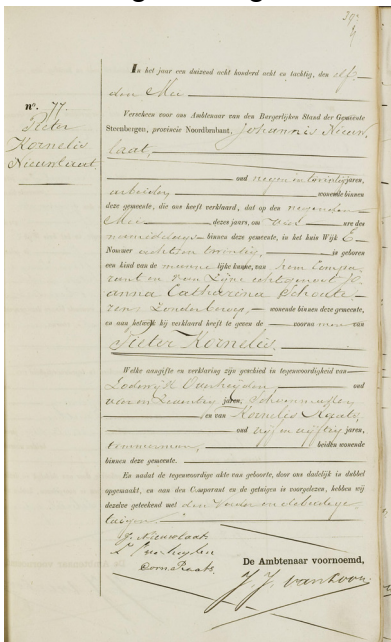 n°. 77.
Pieter
Kornelis
Nieuwlaat.
In het jaar een duizend acht honderd acht en tachtig, den elf-
den Mei
Verscheen voor ons Ambtenaar van den Burgerlijken Stand der Gemeente
Steenbergen, provincie Noordbrabant, Johannis Nieuw
laat,
oud negen en twintig jaren,
arbeider, wonende binnen
deze gemeente, die ons heeft verklaard, dat op den negenden
Mei dezes jaars, om vier ure des
namiddags binnen deze gemeente, in het huis Wijk E
Nommer achttien twintig, is geboren
een kind van de mannelijke kunne, van hem Compa
rant en van zijne echtgenoot Jo
anna Catharina Schoute
rens zonder beroep, wonende binnen deze gemeente,
en aan hetwelk hij verklaard heeft te geven de voornamen van
Pieter Kornelis.
Welke aangifte en verklaring zijn geschied in tegenwoordigheid van
Lodewijk Overheijden, oud
vier en zeventig jaren,
en van Kornelis Raats,
oud vijf en vijftig jaren,
timmerman, beiden wonende
binnen deze gemeente.
En nadat de tegenwoordige akte van geboorte, door ons dadelijk in dubbel
opgemaakt, en aan den Comparant en de getuigen is voorgelezen, hebben wij
dezelve geteekend met den Vader en de beide ge
tuigen
J. Nieuwlaat
L Overheyden
Corn. Raats.
De Ambtenaar voornoemd,